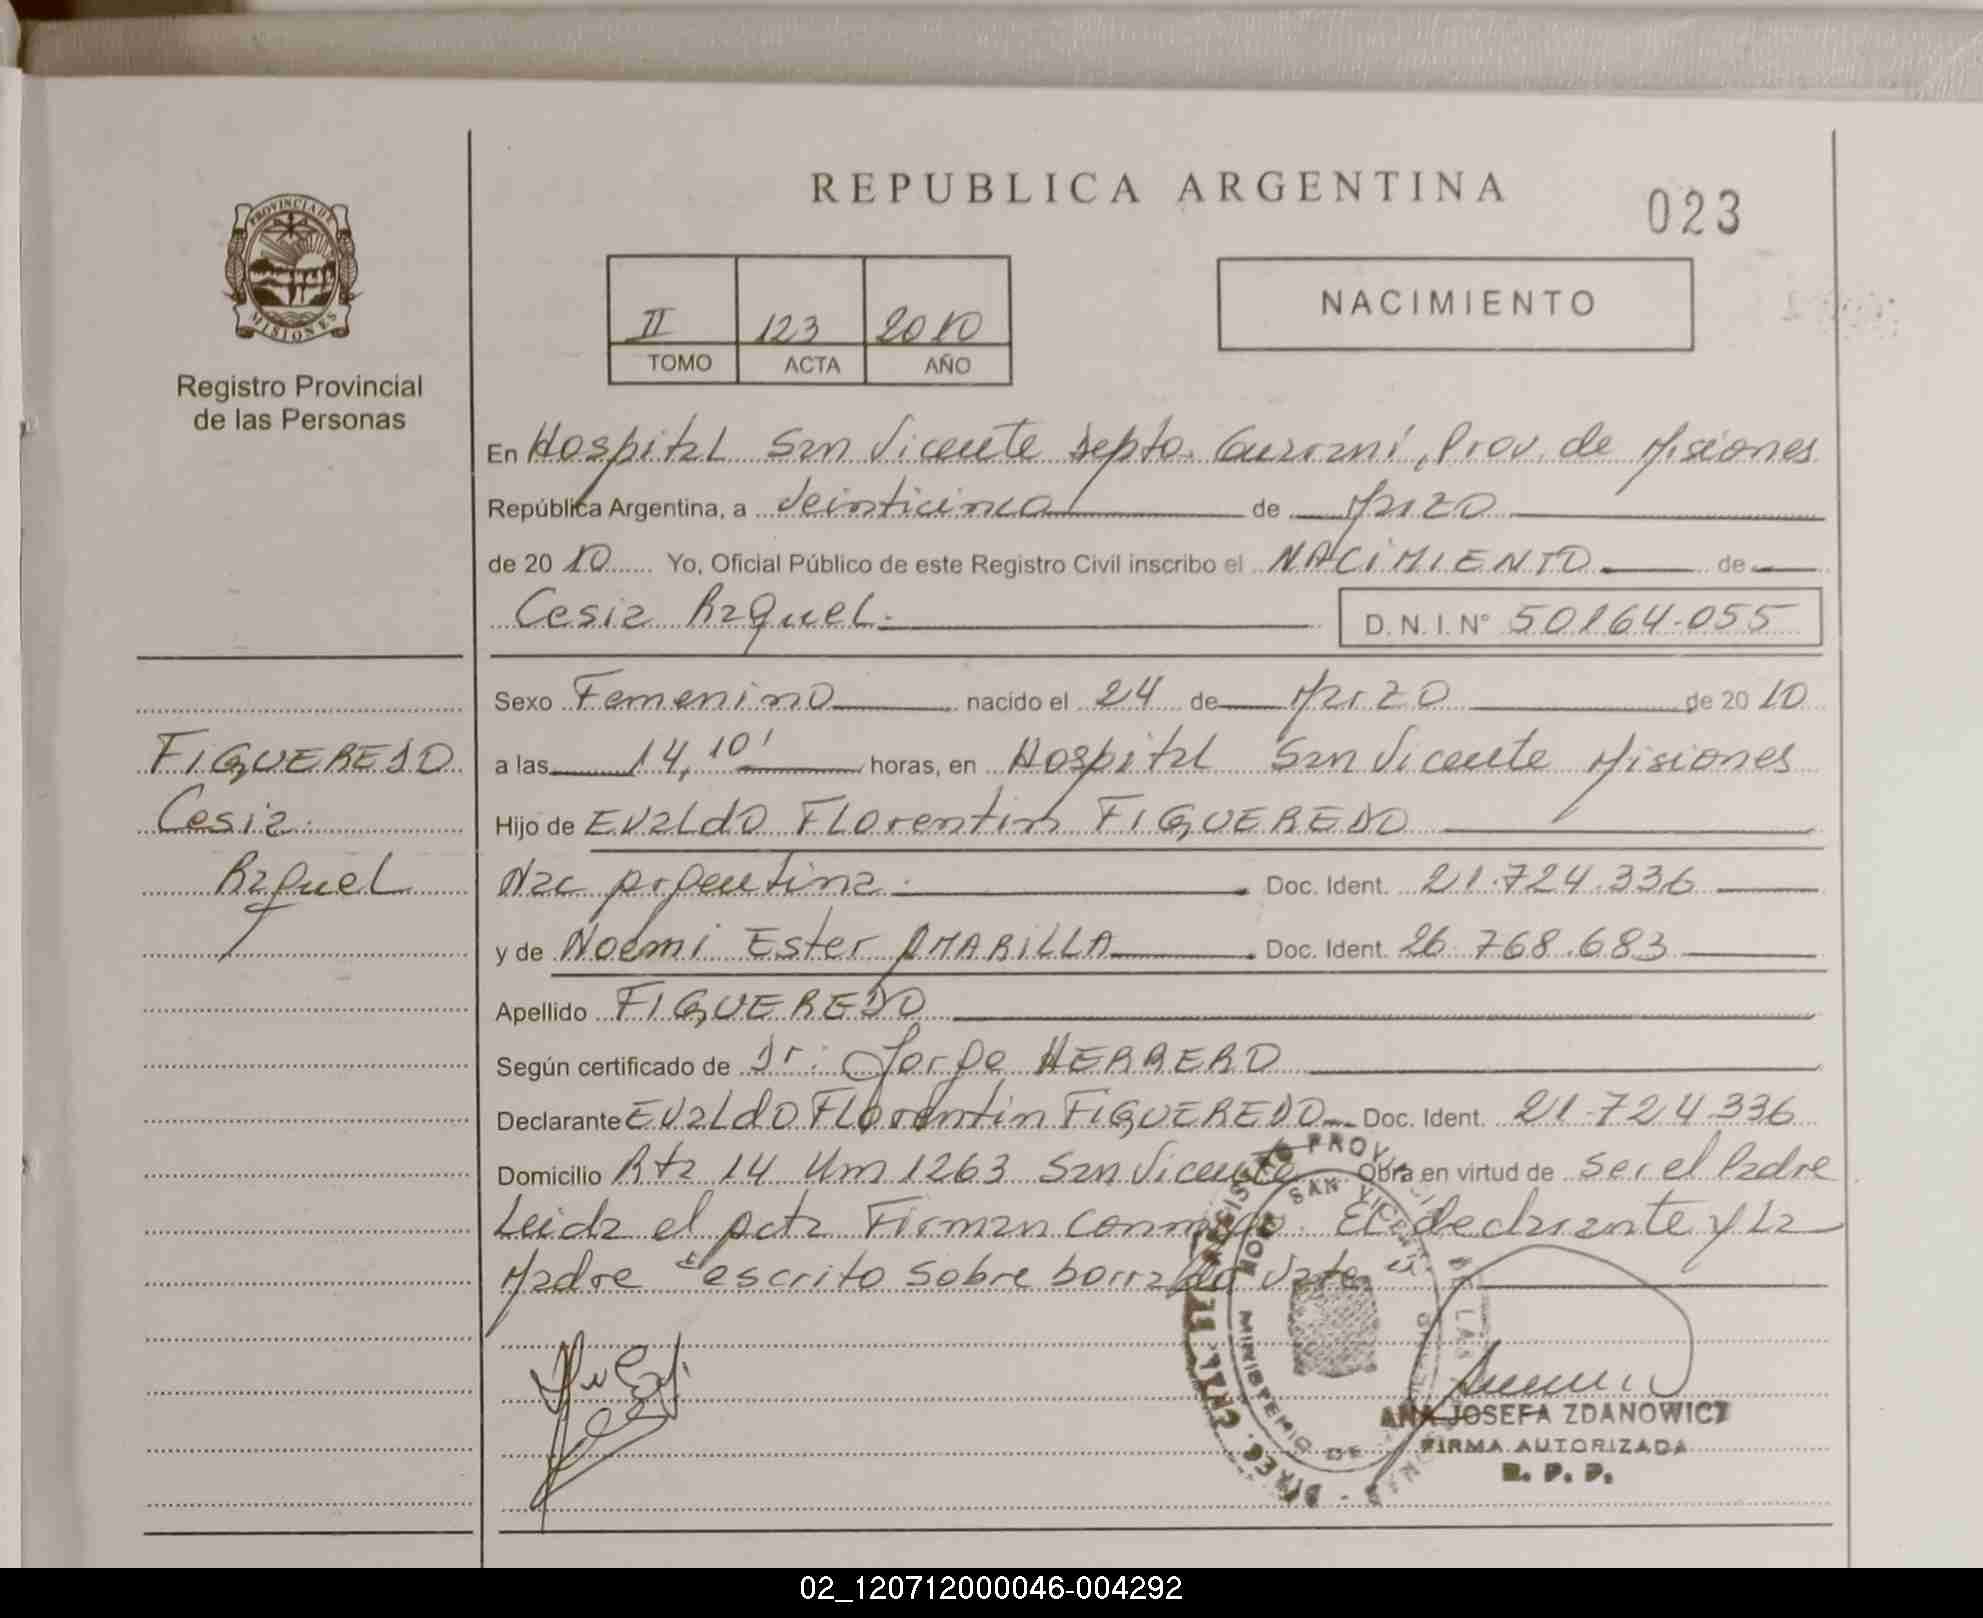 REPUBLICA ARGENTINA
023
PROVINCIA DE
MISIONES
Registro Provincial
de las Personas
II 123 2010
TOMO ACTA AÑO
NACIMIENTO
En Hospital San Vicente Depto. Guaraní, Prov. de Misiones
República Argentina, a veinticinco de Marzo
de 2010 Yo, Oficial Público de este Registro Civil inscribo el NACIMIENTO de
Cesia Raquel. D. N. I. Nº 50164.055
Sexo Femenino nacido el 24 de Marzo de 2010
a las 14,10' horas, en Hospital San Vicente Misiones
Hijo de Evaldo Florentin FIGUEREDO
Nac Argentina. Doc. Ident. 21.724.336
y de Noemi Ester AMARILLA Doc. Ident. 26.768.683
Apellido FIGUEREDO
Según certificado de Dr: Jorge HERRERO
Declarante Evaldo Florentin FIGUEREDO Doc. Ident. 21.724.336
Domicilio Rta 14 Km 1263 San Vicente Obra en virtud de Ser el Padre
Leida el acta Firman conmigo. El declarante y la
Madre "escrito sobre borrado vate
FIGUEREDO
Cesia
Raquel
SAN VICENTE
MINISTERIO DE
ANA JOSEFA ZDANOWICZ
FIRMA AUTORIZADA
R. P. P.
02_120712000046-004292